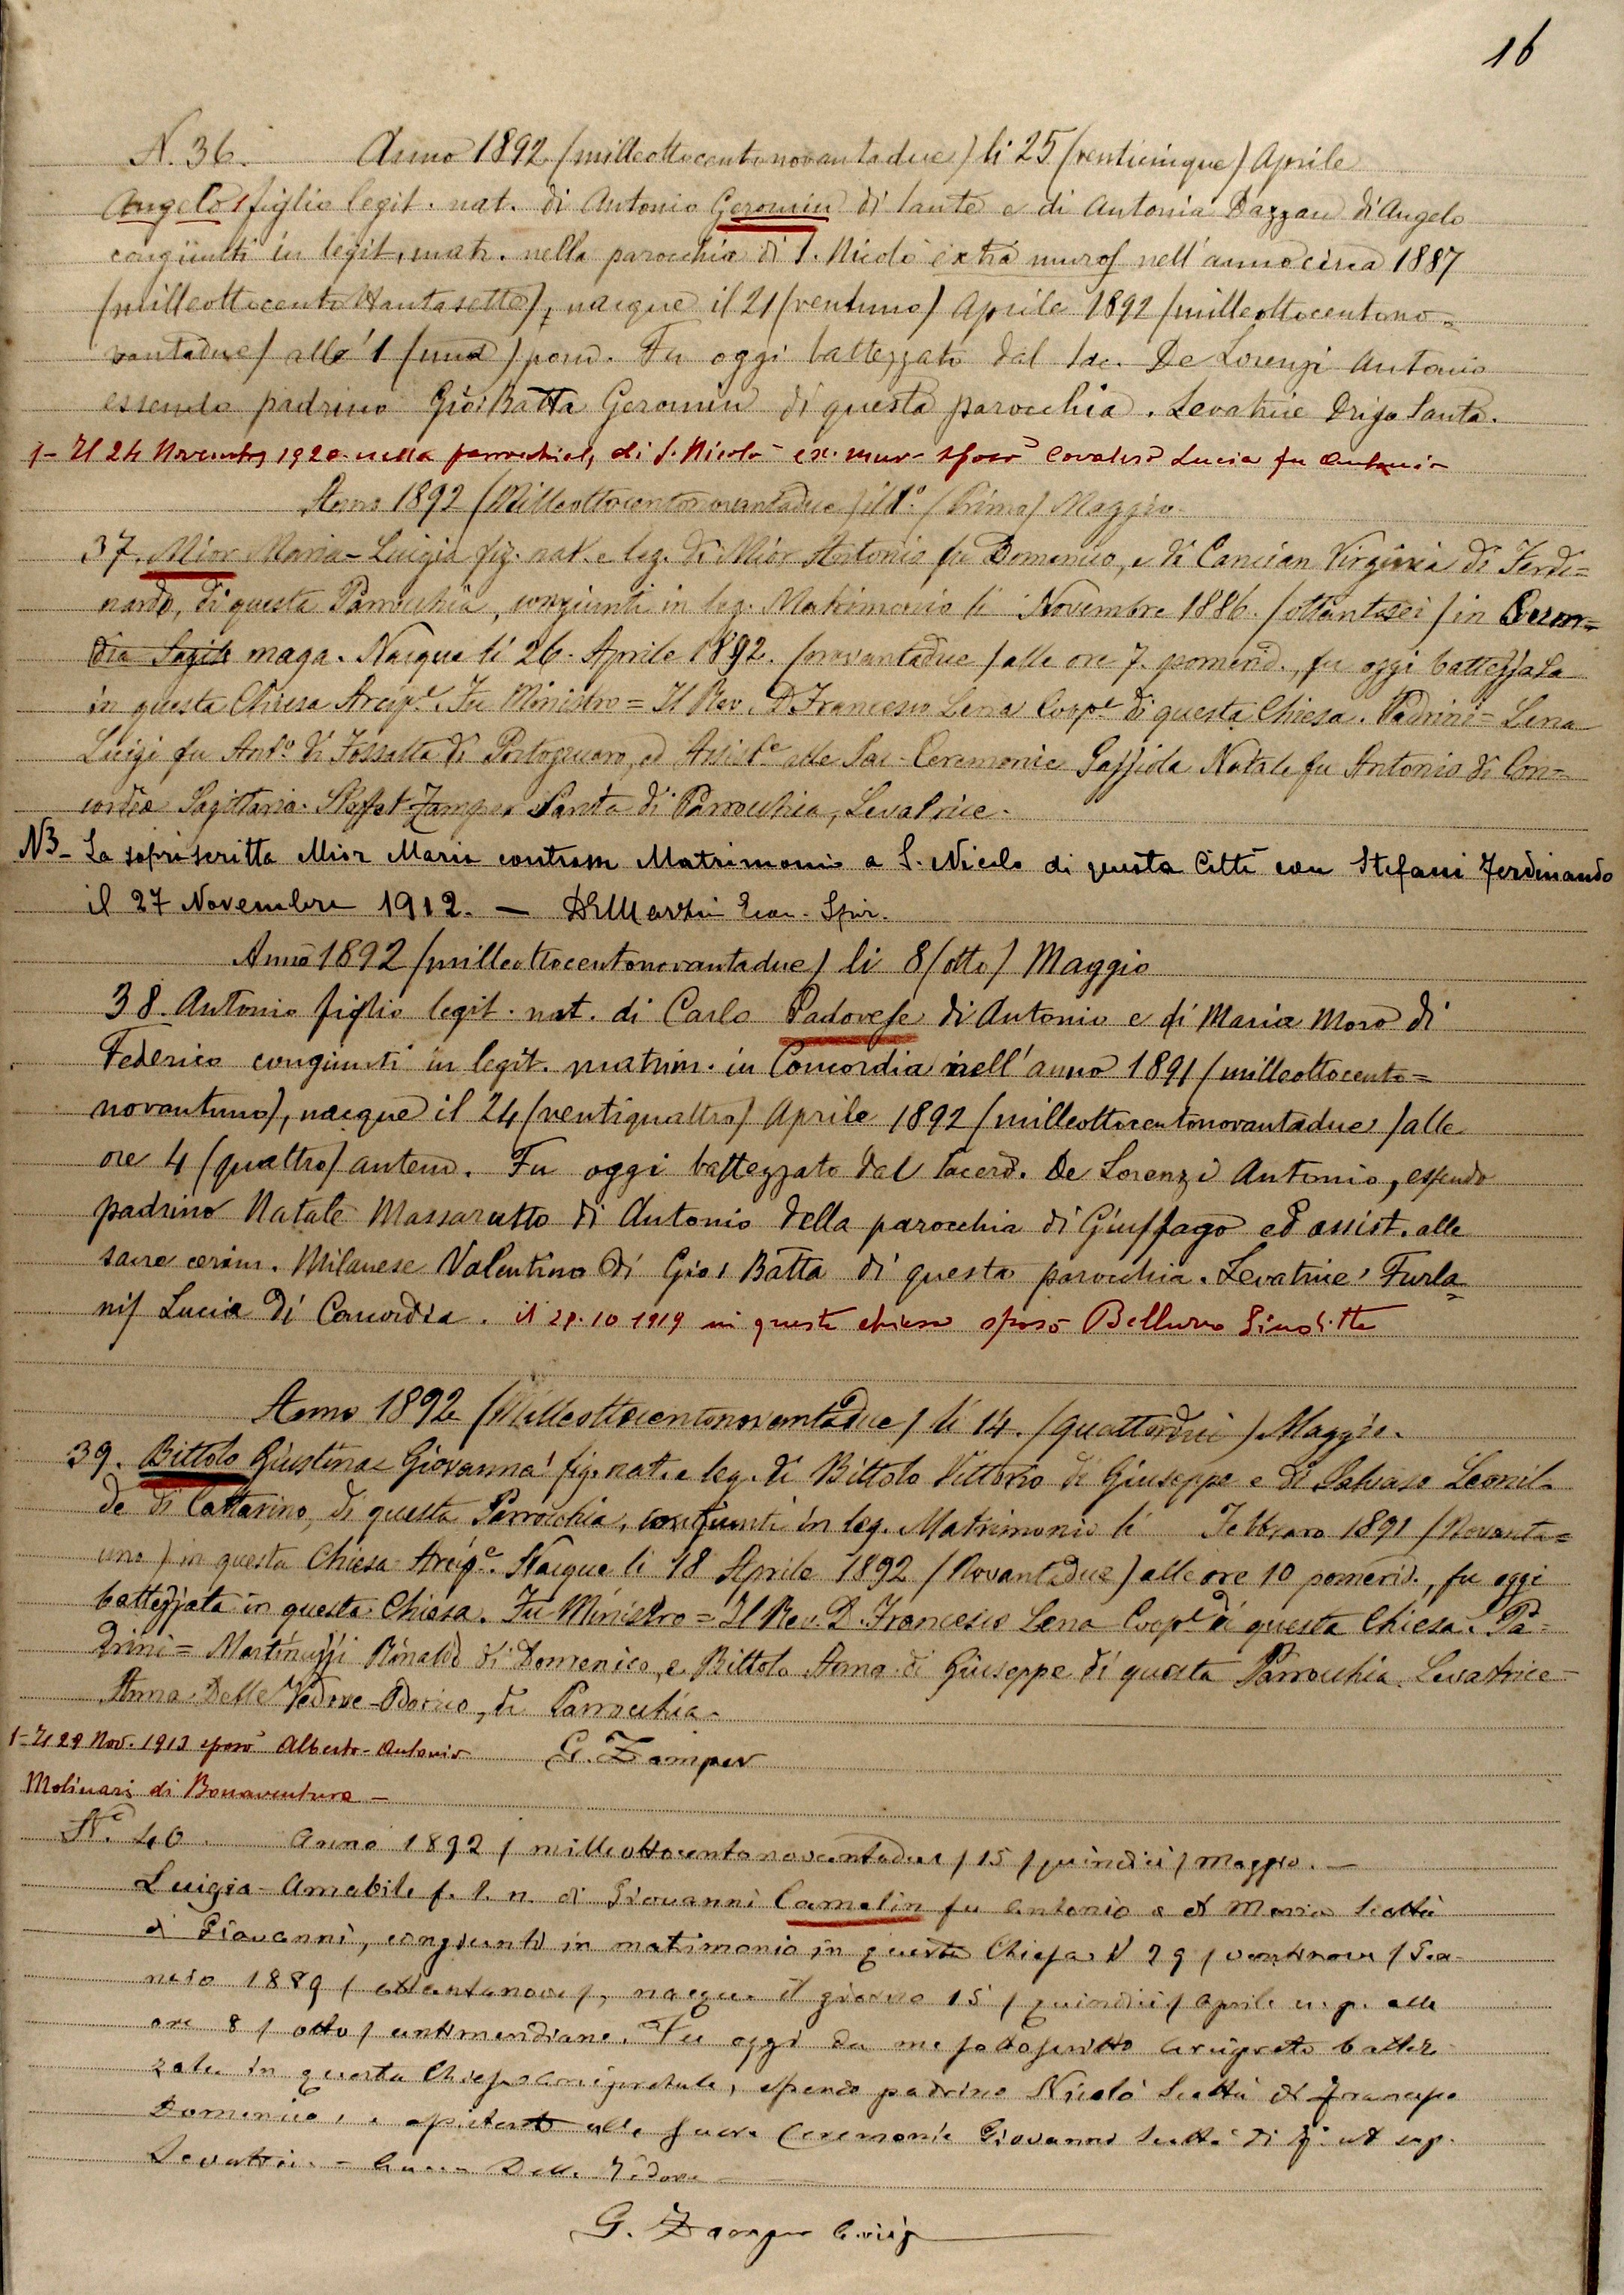 16
N. 36. Anno 1892 (milleottocentonovantadue) li 25 (venticinque) Aprile
Angelo figlio legit. nat. di Antonio Geromin di Sante e di Antonia Dazzan di Angelo
congiunti in legit. matr. nella parocchia di S. Nicolò extra muros nell'anno circa 1887
(milleottocentottantasette), nacque il 21 (ventuno) Aprile 1892 (milleottocentono=
vantadue) alle 1 (una) pom. Fu oggi battezzato dal Sac. De Lorenzi Antonio
essendo padrino Gio: Batta Geromin di questa parocchia. Levatrice Drigo Santa.
1- Il 24 Novembre 1920 nella parrochial, di S. Nicolo ex. mur. sposò Lucia fu Antonio
Anno 1892 (Milleottocentonovantadue) il 1.° (Primo) Maggio.
37. Mior Maria-Luigia fig. nat. e leg. di Mior Antonio fu Domenico, e di Cancian Virginia di Ferdi=
nando, di questa Parrocchia, congiunti in leg. Matrimonio li Novembre 1886. (ottantasei) in
maga. Nacque li 26. Aprile 1892. (novantadue) alle ore 7. pomerid., fu oggi battezzata
in questa Chiesa Arcip.e Fu Ministro = Il Rev. D. Francesco Lena Coop.e di questa Chiesa. Padrini = Lena
Luigi fu Ant.o di Fossalta di Portogruaro, ed Assist.e alle Sac. Ceremonie Gaffiola Natale fu Antonio di Con=
cordia Sagittaria. Zamper Santa di Parrocchia, Levatrice.
NB- La soprascritta Mior Maria contrasse Matrimonio a S. Nicolo di questa Città con Stefani Ferdinando
il 27 Novembre 1912. — Spir.
Anno 1892 (milleottocentonovantadue) li 8 (otto) Maggio
38. Antonio figlio legit. nat. di Carlo Padovese di Antonio e di Maria Moro di
Federico congiunti in legit. matrim. in Concordia nell'anno 1891 (milleottocento=
novantuno), nacque il 24 (ventiquattro) Aprile 1892 (milleottocentonovantadue) alle
ore 4 (quattro) antem. Fu oggi battezzato dal Sacerd. De Lorenzi Antonio, essendo
padrino Natale Massarutto di Antonio della parocchia di Giussago ed assist. alle
sacre cerim. Milanese Valentino di Gio: Batta di questa parocchia. Levatrice Furla=
nis Lucia di Concordia. il 28.10 1919 in questa chiesa sposò Belluno Giuditta
Anno 1892 (Milleottocentonovantadue) li 14. (quattordici) Maggio.
39. Bittolo Giustina Giovanna fig. nat. e leg. di Bittolo Vittorio di Giuseppe e di Salvaso Leonil=
de di Cattarino, di questa Parrocchia, congiunti in leg. Matrimonio li Febbraro 1891 (Novanta=
uno) in questa Chiesa Arcip.e. Nacque li 18 Aprile 1892 (Novantadue) alle ore 10 pomerid., fu oggi
battezzata in questa Chiesa. Fu Ministro = Il Rev. D. Francesco Lena Coop.e di questa Chiesa. Pa=
drini = Martinuzzi Rinaldo di Domenico, e Bittolo Anna di Giuseppe di questa Parrocchia. Levatrice =
Anna Delle Vedove-Odorico, di Parrocchia.
1- Il 29 Nov. 1913 sposò Alberto-Antonio G. Zamper
Molinari di Bonaventura -
N.° 40. Anno 1892 (milleottocentonovantadue) 15 (quindici) Maggio. —
Luigia-Amabile f. l. n. di Giovanni Camolin fu Antonio e di Maria Scottà
di Giovanni, congiunti in matrimonio in questa Chiesa il 29 (ventinove) Gen-
naio 1889 (ottantanove), nacque il giorno 15 (quindici) Aprile u. p. alle
ore 8 (otto) antimeridiane. Fu oggi da me sottoscritto Arciprete battez-
zata in questa Chiesa Arcipretale, essendo padrino Nicolò Scottà di
Domenico, e assistente alle Sacre Ceremonie Giovanni Scottà di
Levatrice - Anna Delle Vedove
G. Zamper Arcip